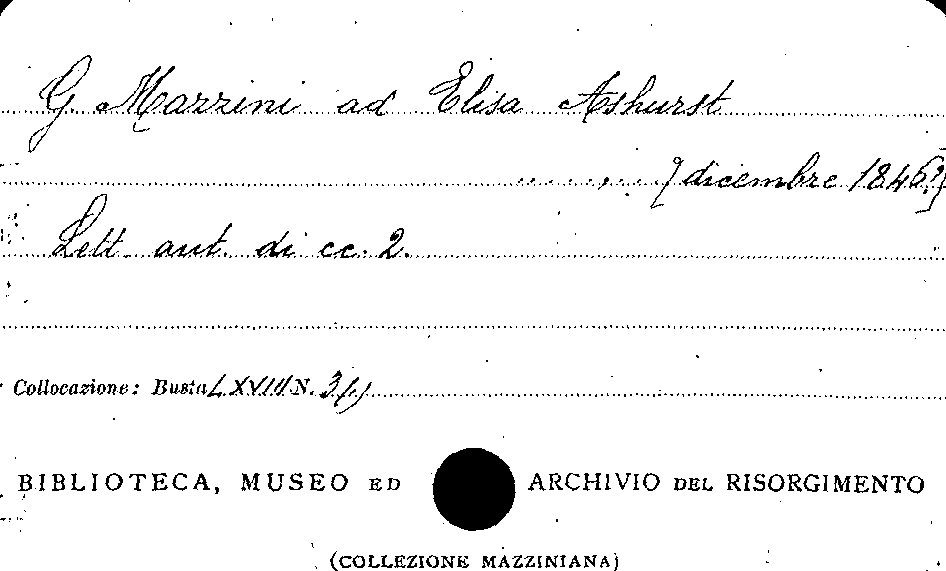 G. Mazzini ad Elisa Ashurst
[dicembre 1846?]
Lett. aut. di cc. 2.
Collocazione: Busta LXVIII N. 3(1)
BIBLIOTECA, MUSEO ED ARCHIVIO DEL RISORGIMENTO
(COLLEZIONE MAZZINIANA)